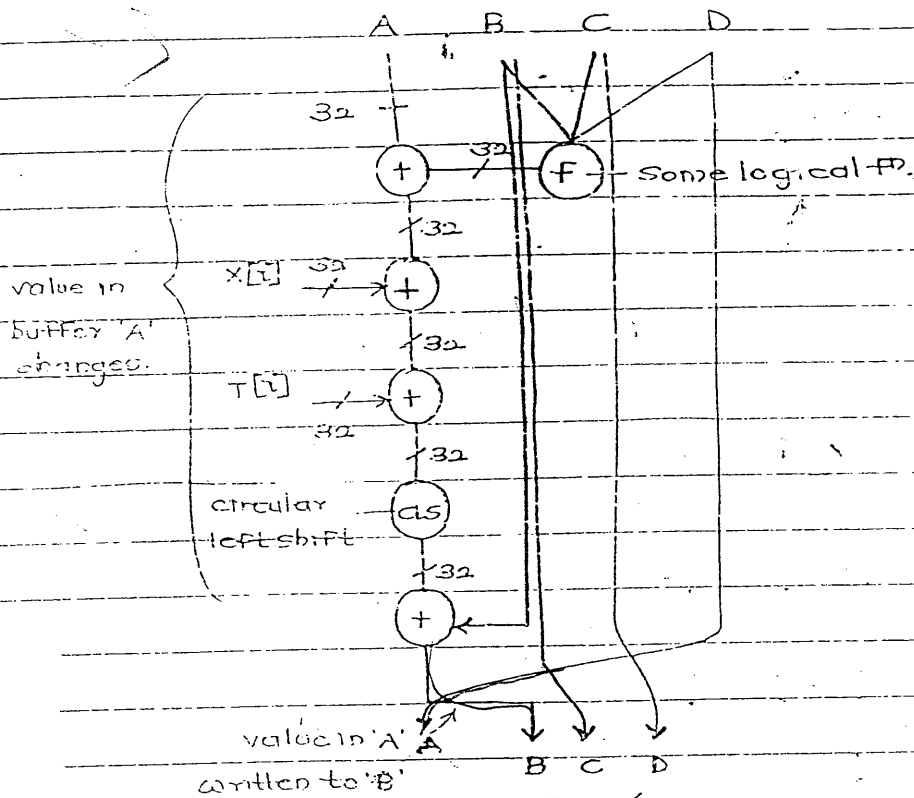 A B C D
32
32
+ F some logical fn.
32
X[i] 32
+
value in
buffer 'A'
changes.
32
T[i]
+
32
32
circular
left shift
CLS
32
+
value in 'A' A
written to 'B'
B C D